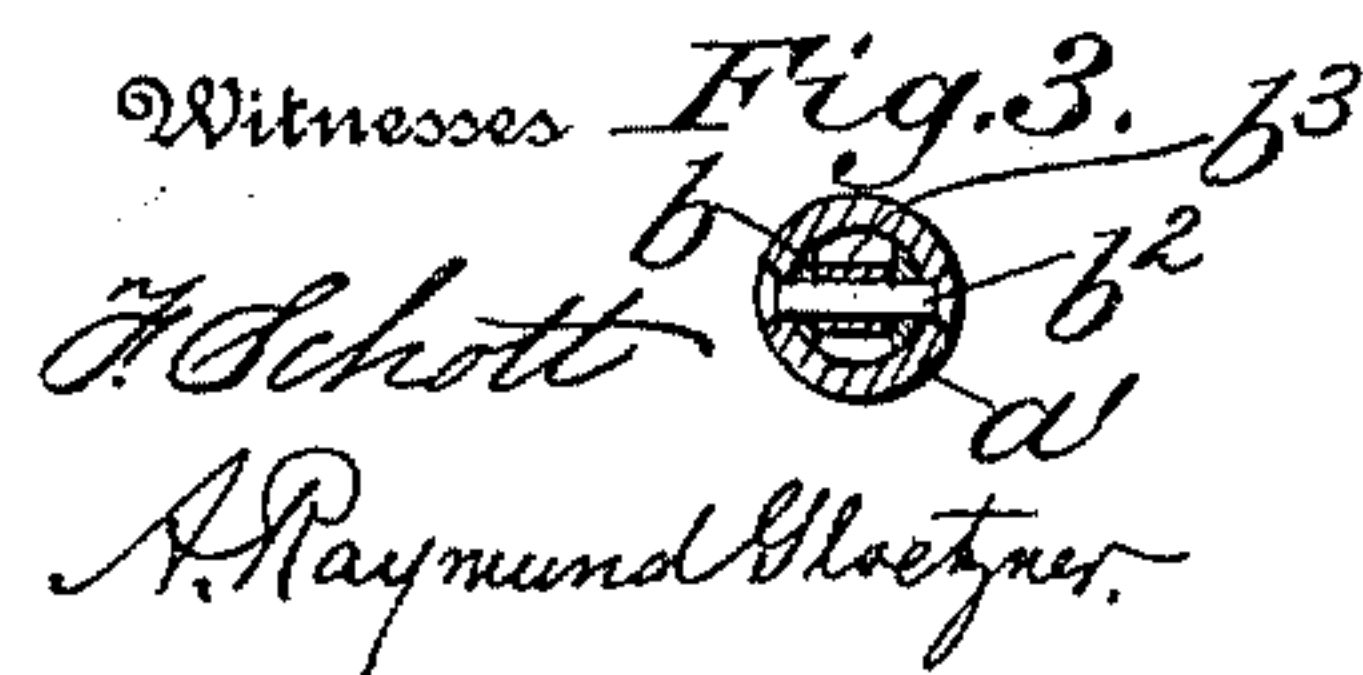 Witnesses Fig. 3.
b b³
b²
F. Schott
a
A. Raymund Gloetzner.